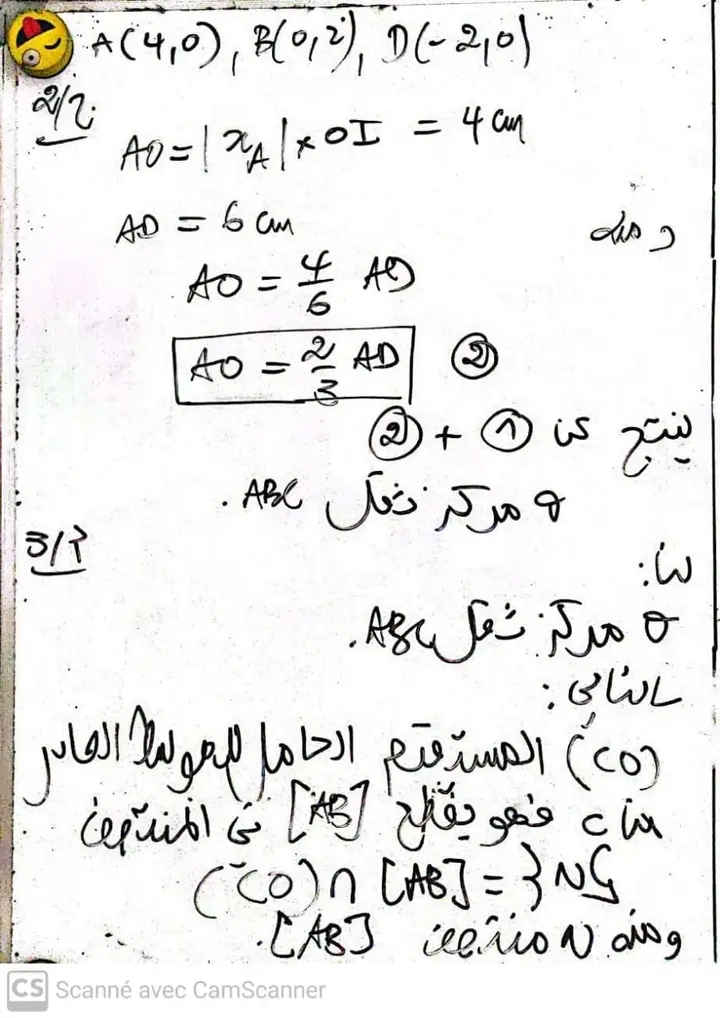 A(4,0), B(0,2), D(-2,0)
2/أ.
AO = |x_A| × OI = 4 cm
AD = 6 cm ومنه
AO = 4/6 AD
AO = 2/3 AD ②
ينتج من ① + ②
O مركز ثقل ABC.
3/أ
لنا:
O مركز ثقل ABC.
بالتالي:
(CO) المستقيم الحامل للموسط الصادر
من C فهو يقطع [AB] في المنتصف
(CO) ∩ [AB] = {N}
ومنه N منتصف [AB].
CS Scanné avec CamScanner